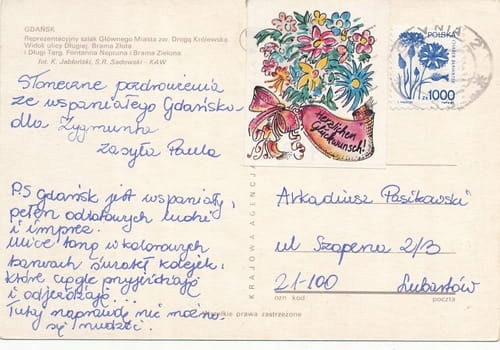 GDAŃSK
Reprezentacyjny szlak Głównego Miasta zw. Drogą Królewską.
Widok ulicy Długiej, Brama Złota
i Długi Targ, Fontanna Neptuna i Brama Zielona
fot. K. Jabłoński, S.R. Sadowski - KAW
Słoneczne pozdrowienia
ze wspaniałego Gdańska
dla Zygmunta
zasyła Paula
P.S Gdańsk jest wspaniały,
pełen odlotowych ludzi
i imprez.
kolorowych
barwach świateł kolejek,
które ciągle przyjeżdżają
i odjeżdżają...
Tutaj naprawdę nie można
się nudzić.
KRAJOWA AGENCJA
Herzlichen
Glückwunsch!
POLSKA
zł 1000
GDYNIA 2
Arkadiusz Pasikowski
ul Szopena 2/3
21-100 Lubartów
ozn kod poczta
Wszelkie prawa zastrzeżone